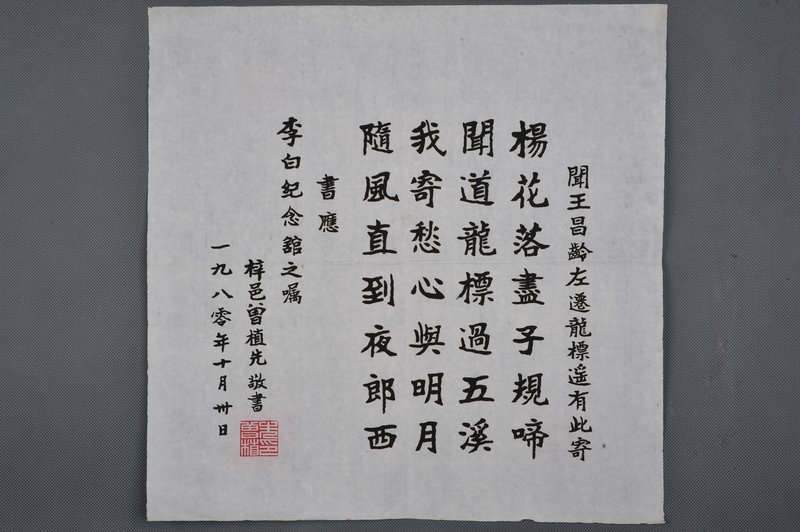 聞王昌齡左遷龍標遥有此寄
楊花落盡子規啼
聞道龍標過五溪
我寄愁心與明月
隨風直到夜郎西
書應
李白纪念舘之嘱
梓邑曾植先敬書
一九八零年十月卅日